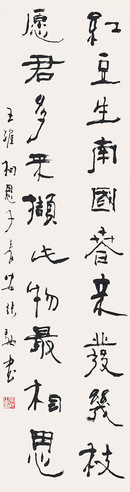 紅豆生南國春來發幾枝
愿君多采擷此物最相思
王維相思子書